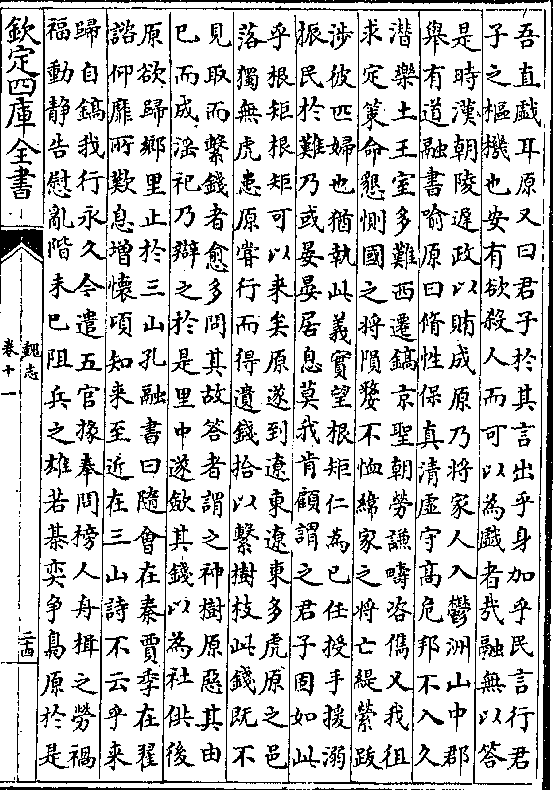 吾直戯耳原又曰君子於其言出乎身加乎民言行君
子之樞機也安有欲殺人而可以為戯者哉融無以答
是時漢朝陵遲政以賄成原乃將家人入鬱洲山中郡
舉有道融書喻原曰脩性保真清虛守高危邦不入久
潛樂土王室多難西遷鎬京聖朝勞謙疇咨儁乂我徂
求定策命懇惻國之將隕嫠不恤緯家之將亡緹縈跋
涉彼匹婦也猶執此義實望根矩仁為己任授手援溺
振民於難乃或晏晏居息莫我肯顧謂之君子固如此
乎根矩根矩可以来矣原遂到遼東遼東多虎原之邑
落獨無虎患原嘗行而得遺錢拾以繫樹枝此錢既不
見取而繫錢者愈多問其故答者謂之神樹原惡其由
已而成淫祀乃辯之於是里中遂歛其錢以為社供後
原欲歸鄉里止於三山孔融書曰隨會在秦賈季在翟
諮仰靡所歎息增懷頃知来至近在三山詩不云乎来
歸自鎬我行永久今遣五官掾奉問榜人舟楫之勞禍
福動静告慰亂階未已阻兵之雄若棊奕争梟原於是
欽定四庫全書
魏志
卷十一
二十四